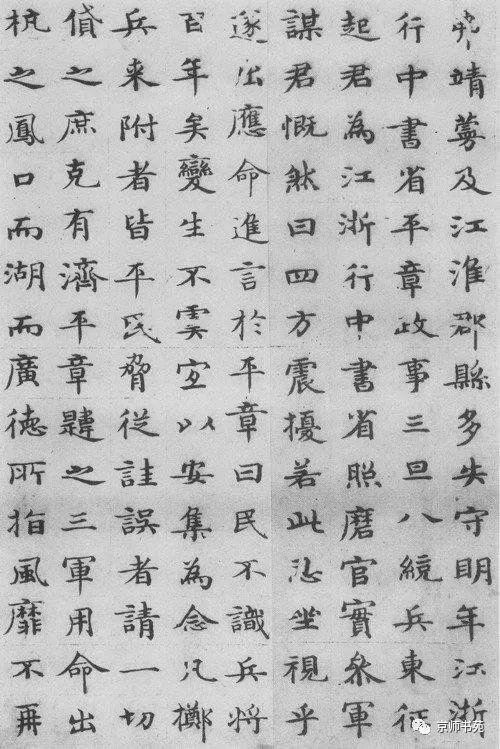 靖蘄及江淮郡縣多失守明年江浙
行中書省平章政事三旦八統兵東征
起君為江浙行中書省照磨官實叅軍
謀君慨然曰四方震擾若此忍坐視乎
遂出應命進言於平章曰民不識兵將
百年矣變生不虞宜以安集為念凡擲
兵來附者皆平民脅從詿誤者請一切
貸之庶克有濟平章韙之三軍用命出
杭之鳳口而湖而廣德所指風靡不再
京师书苑